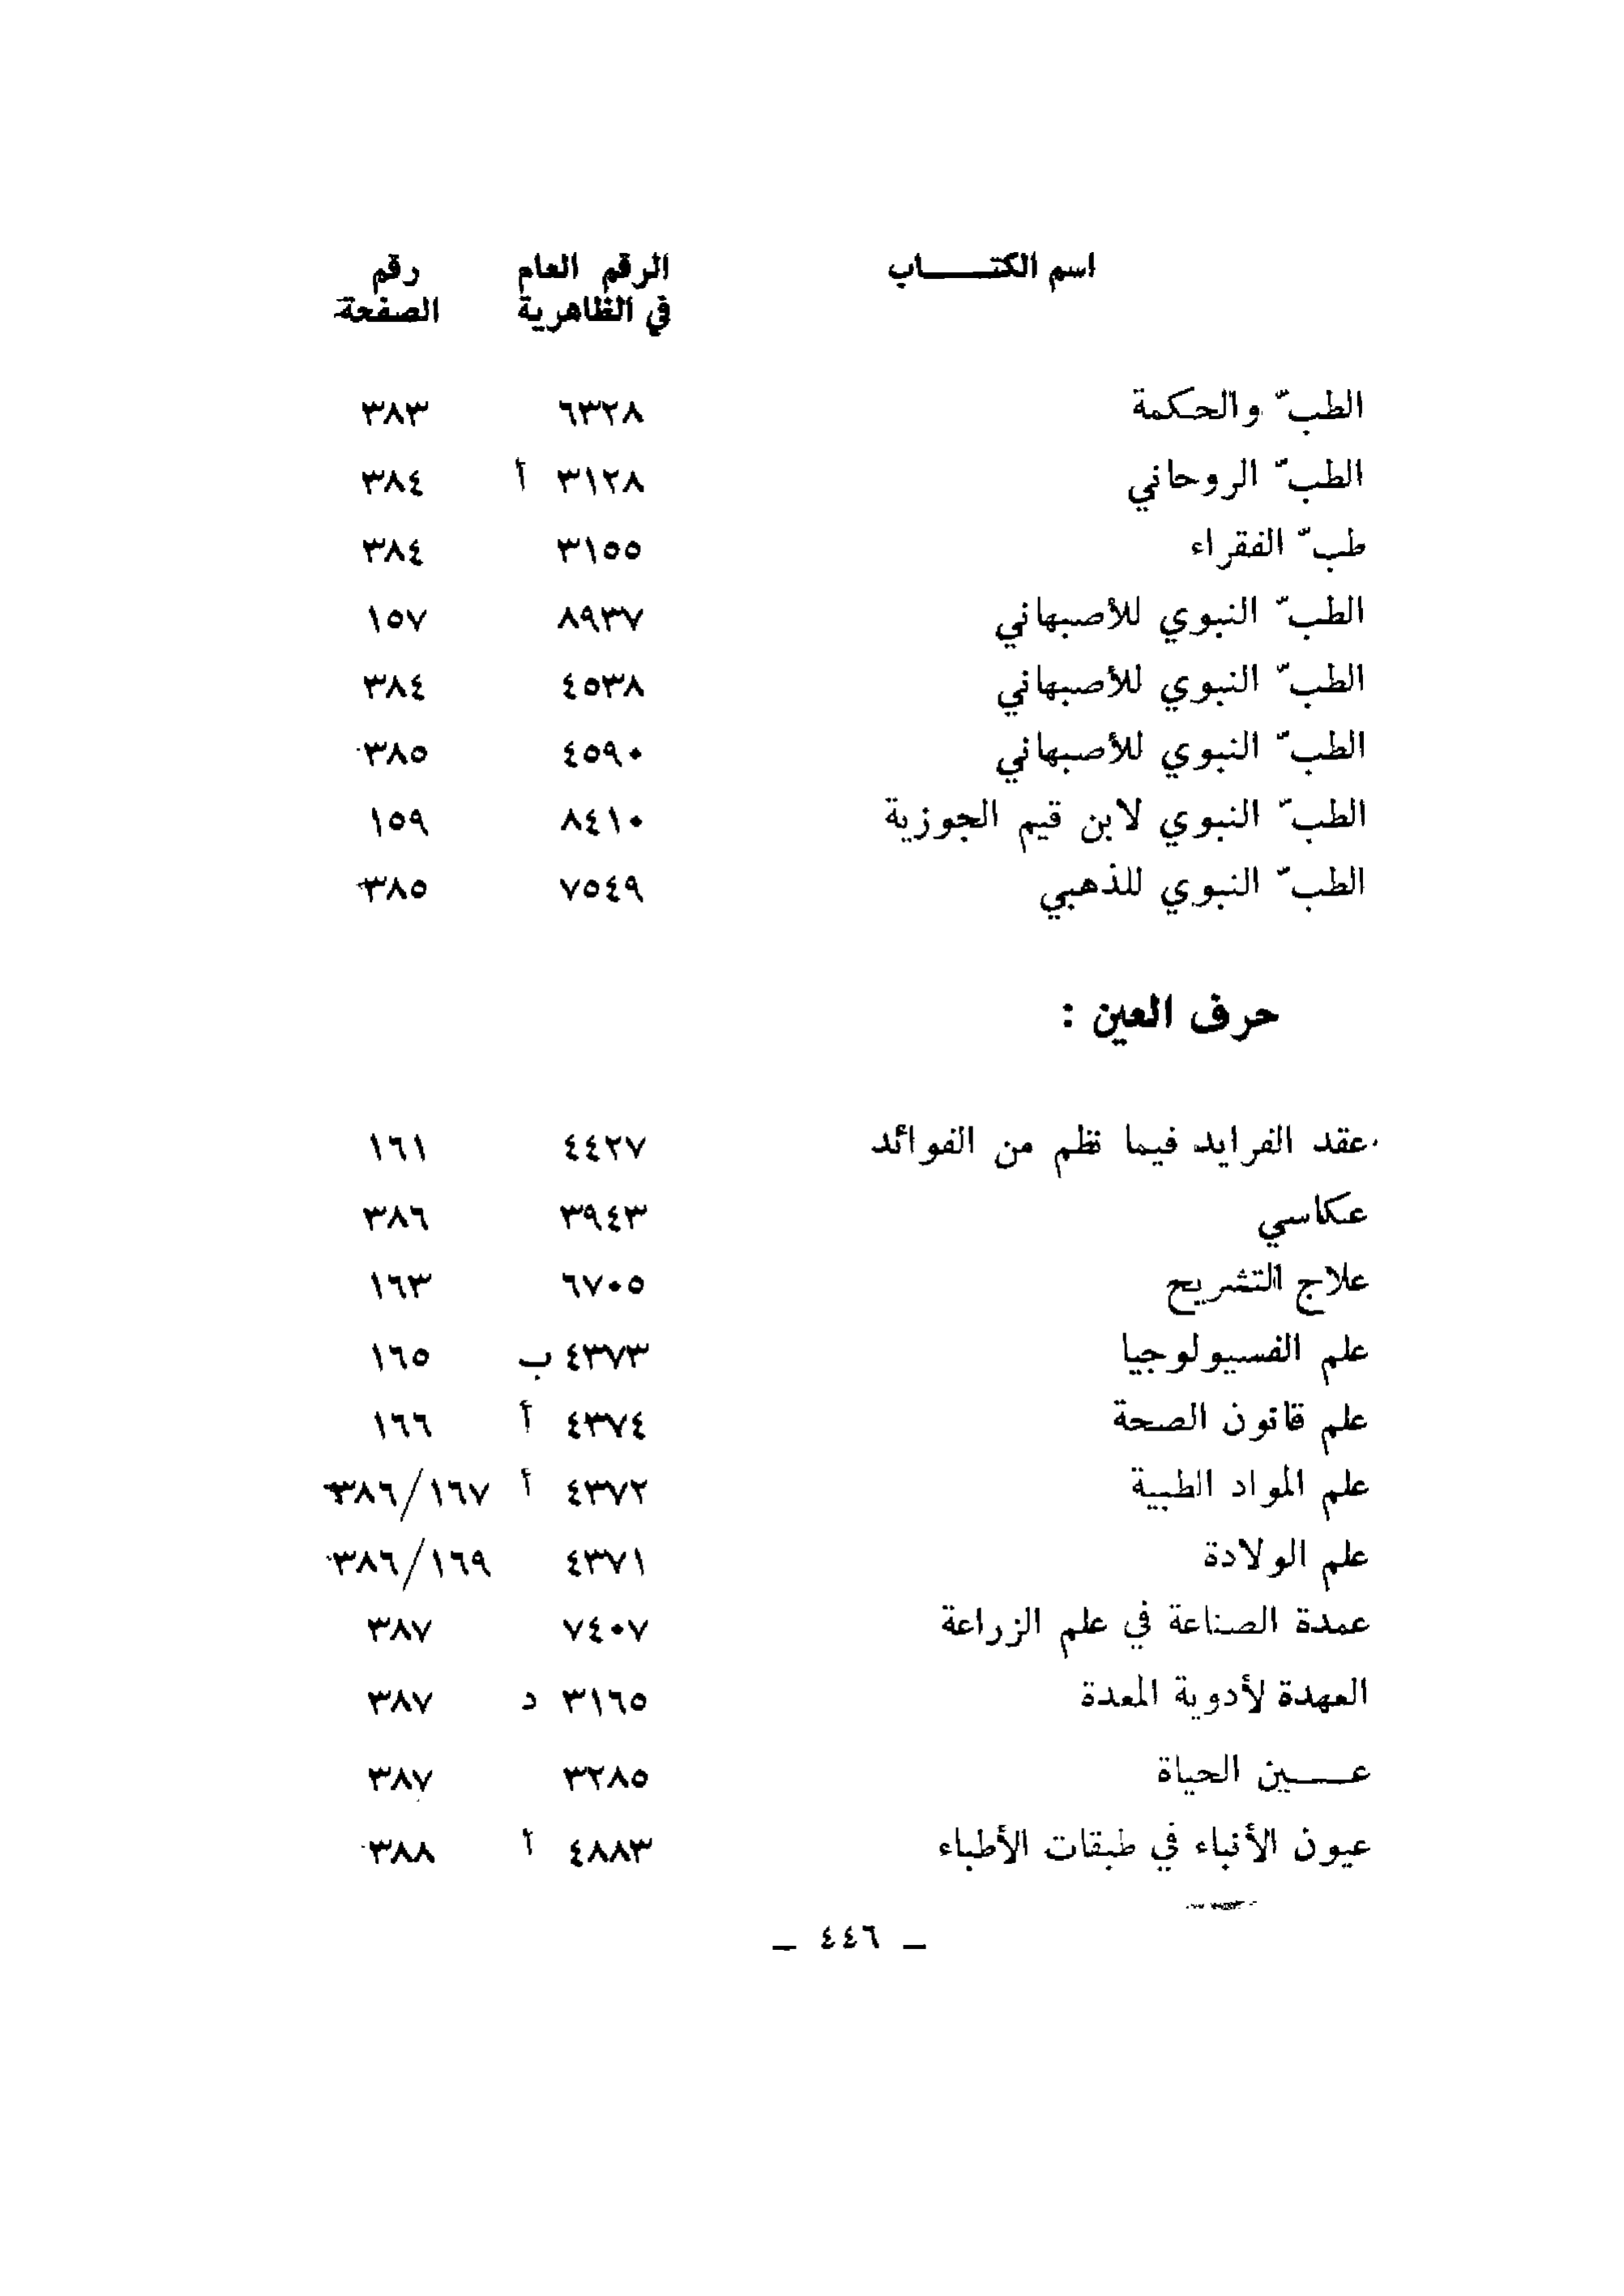 اسم الكتـــــاب الرقم العام رقم
في الظاهرية الصفحة
الطبّ والحكمة ٦٣٢٨ ٣٨٣
الطبّ الروحاني ٣١٢٨ أ ٣٨٤
طبّ الفقراء ٣١٥٥ ٣٨٤
الطبّ النبوي للأصبهاني ٨٩٣٧ ١٥٧
الطبّ النبوي للأصبهاني ٤٥٣٨ ٣٨٤
الطبّ النبوي للأصبهاني ٤٥٩٠ ٣٨٥
الطبّ النبوي لابن قيم الجوزية ٨٤١٠ ١٥٩
الطبّ النبوي للذهبي ٧٥٤٩ ٣٨٥
حرف العين :
عقد الفرايد فيما نظم من الفوائد ٤٤٢٧ ١٦١
عكاسي ٣٩٤٣ ٣٨٦
علاج التشريح ٦٧٠٥ ١٦٣
علم الفسيولوجيا ٤٣٧٣ ب ١٦٥
علم قانون الصحة ٤٣٧٤ أ ١٦٦
علم المواد الطبية ٤٣٧٢ أ ٣٨٦/١٦٧
علم الولادة ٤٣٧١ ٣٨٦/١٦٩
عمدة الصناعة في علم الزراعة ٧٤٠٧ ٣٨٧
العهدة لأدوية المعدة ٣١٦٥ د ٣٨٧
عـــــين الحياة ٣٢٨٥ ٣٨٧
عيون الأنباء في طبقات الأطباء ٤٨٨٣ أ ٣٨٨
– ٤٤٦ –